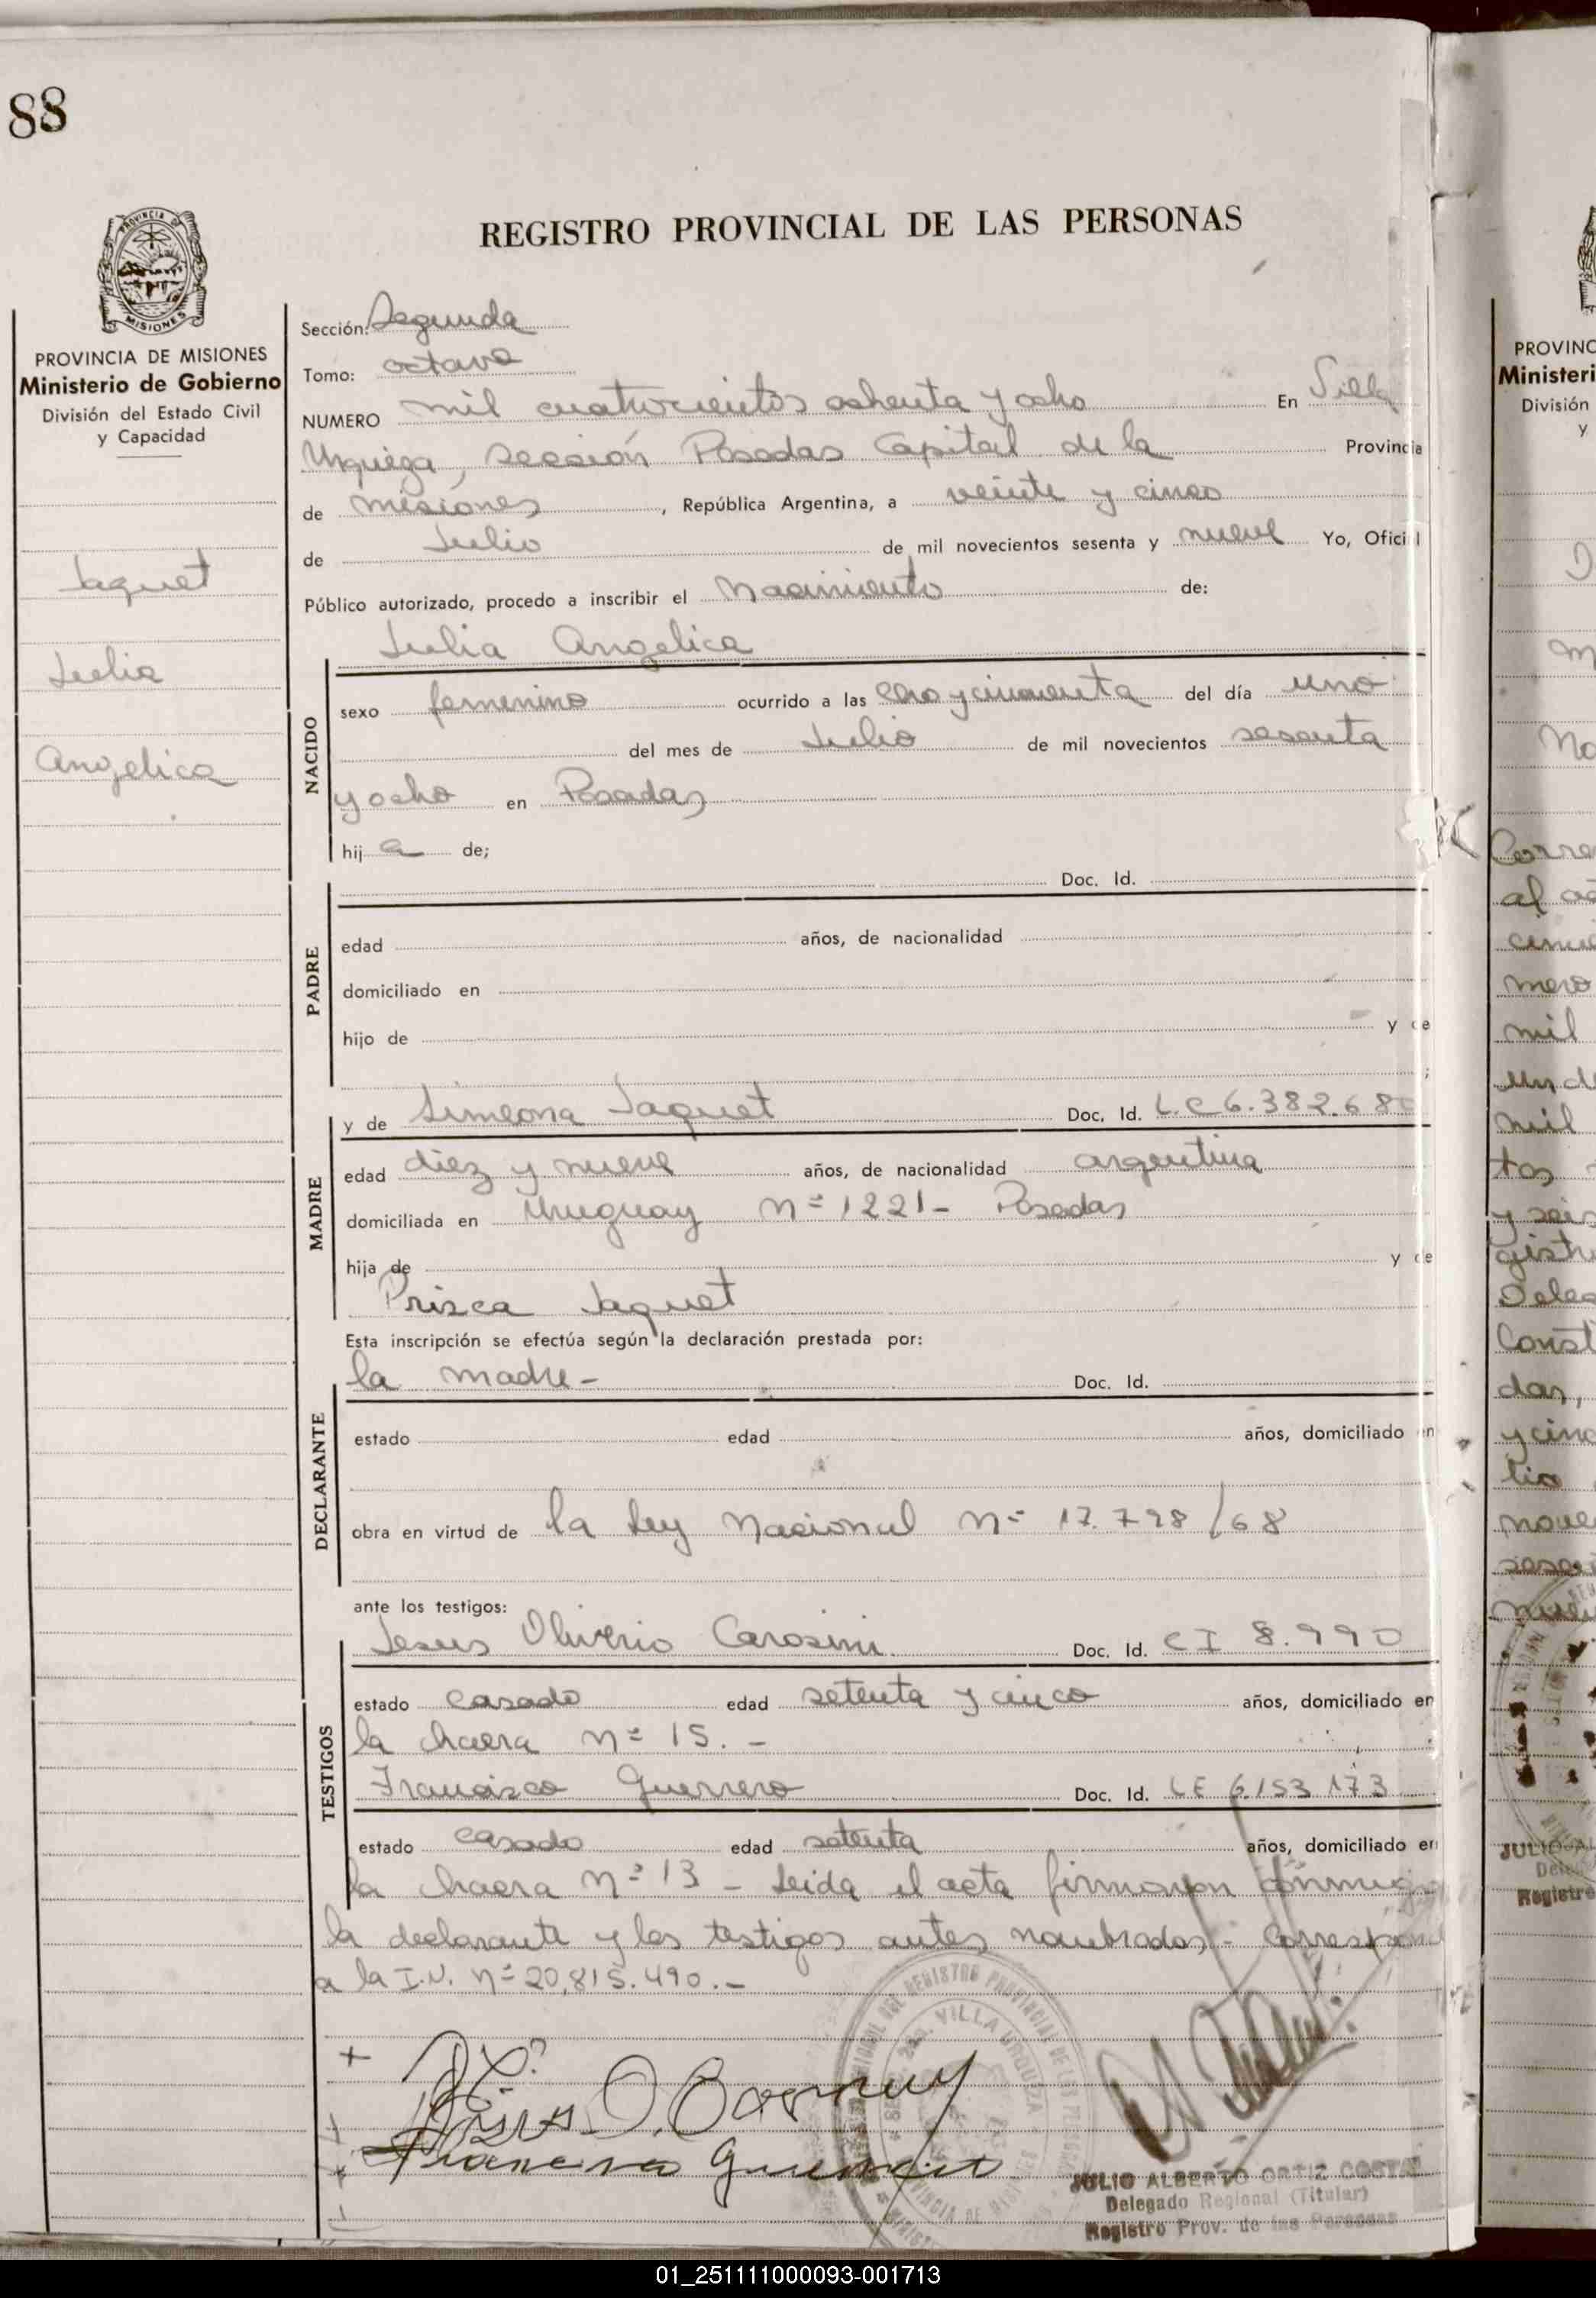 88
REGISTRO PROVINCIAL DE LAS PERSONAS
PROVINCIA DE MISIONES
PROVINCIA DE MISIONES
Ministerio de Gobierno
División del Estado Civil
y Capacidad
Jaquet
Julia
Angelica
Sección: Segunda
Tomo: octavo
NUMERO mil cuatrocientos ochenta y ocho En Villa
Urquiza, sección Posadas Capital de la Provincia
de misiones, República Argentina, a veinte y cinco
de Julio de mil novecientos sesenta y nueve Yo, Oficial
Público autorizado, procedo a inscribir el Nacimiento de:
Julia Angelica
NACIDO
sexo femenino ocurrido a las cero y cincuenta del día uno
del mes de Julio de mil novecientos sesenta
y ocho en Posadas
hij a de;
Doc. Id.
PADRE
edad años, de nacionalidad
domiciliado en
hijo de y de
;
MADRE
y de Simeona Jaquet Doc. Id. L.C 6.382.68
edad diez y nueve años, de nacionalidad argentina
domiciliada en Uruguay nº 1221 - Posadas
hija de y de
Prisca Jaquet
Esta inscripción se efectúa según la declaración prestada por:
la madre - Doc. Id.
DECLARANTE
estado edad años, domiciliado en
obra en virtud de la Ley Nacional nº 17.798/68
ante los testigos:
TESTIGOS
Jesus Oliverio Carosini Doc. Id. CI 8.990
estado casado edad setenta y cinco años, domiciliado en
la chacra nº 15. -
Francisco Guerrero Doc. Id. LE 6.153.173
estado casado edad setenta años, domiciliado en
la chacra nº 13 - Leida el acta firmaron conmigo
la declarante y los testigos antes nombrados - Corresponde
a la I.N. nº 20,815.490.-
JULIO ALBERTO ORTIZ COSTA
Delegado Regional (Titular)
Registro Prov. de las Personas
VILLA URQUIZA
PROVINC
Ministeri
División
y
Corre
al
mero
mil
mil
tos
y seis
Const
das,
JULIO AL
Registro
01_251111000093-001713